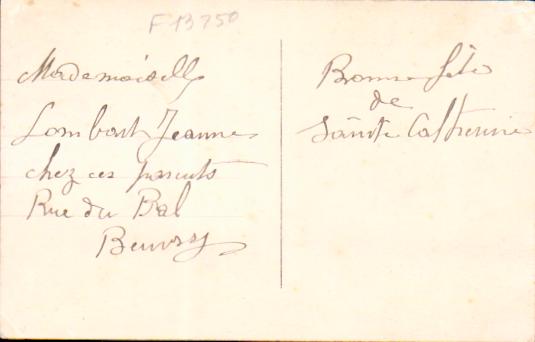 F 13750
Mademoiselle
Lombart Jeanne
chez ces parents
Rue du Bal
Beuvry
Bonne fête
de
Sainte Catherine